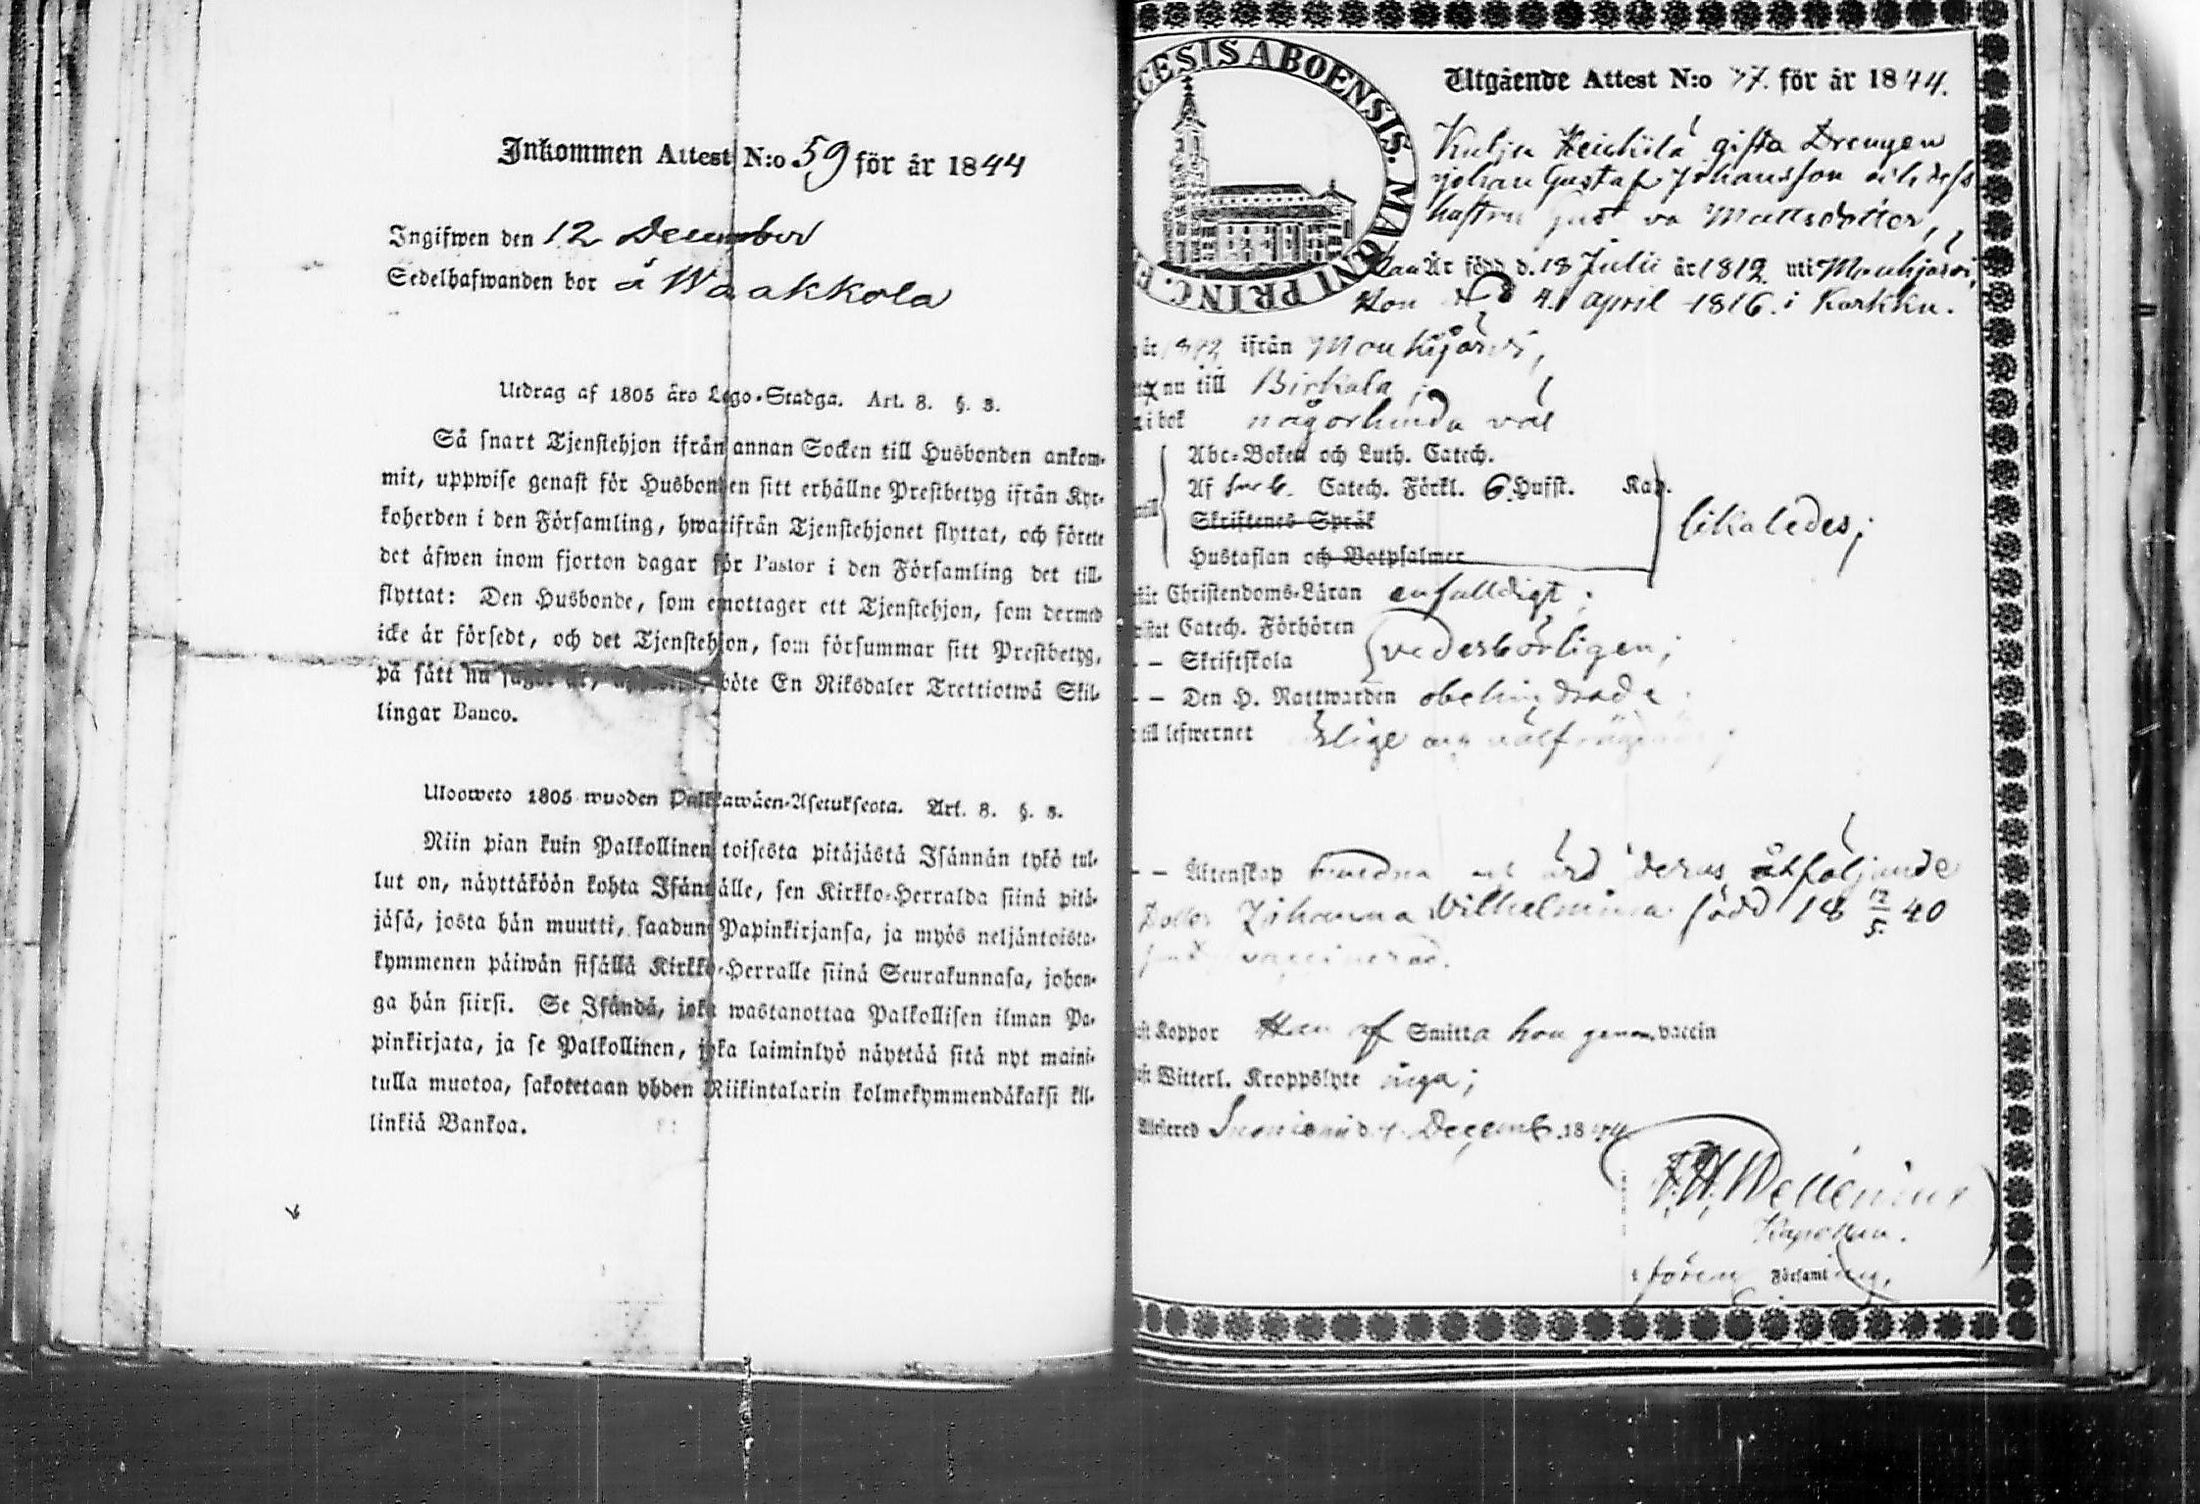 Inkommen Attest N:o 59 för år 1844
Ingifwen den 12 December
Sedelhafwanden bor å Waakkola
Utdrag af 1805 års Lego-Stadga. Art. 8. §. 3.
Så snart Tjenstehjon ifrån annan Socken till Husbonden ankom-
mit, uppwise genast för Husbonden sitt erhållne Prestbetyg ifrån Kyr-
koherden i den Församling, hwarifrån Tjenstehjonet flyttat, och förete
det äfwen inom fjorton dagar för Pastor i den Församling det till-
flyttat: Den Husbonde, som emottager ett Tjenstehjon, som dermed
icke är försedt, och det Tjenstehjon, som försummar sitt Prestbetyg,
på sått nu sagdt är, böte En Riksdaler Trettiotwå Skil-
lingar Banco.
Uloosweto 1805 wuoden Palkkawäen-Asetuksesta. Art. 8. §. 3.
Niin pian kuin Palkollinen toisesta pitäjästä Isännän tykö tul-
lut on, näyttäköön kohta Isännälle, sen Kirkko-Herralda siinä pitä-
jäsä, josta hän muutti, saadun Papinkirjansa, ja myös neljäntoista-
kymmenen päiwän sisällä Kirkko-Herralle siinä Seurakunnasa, johon-
ga hän siirsi. Se Isändä, joka wastanottaa Palkollisen ilman Pa-
pinkirjata, ja se Palkollinen, joka laiminlyö näyttää sitä nyt maini-
tulla muotoa, sakotetaan yhden Riikintalarin kolmekymmendäkaksi kil-
linkiä Bankoa.
CESIS ABOENSIS. MAGNI PRINC. F
Utgående Attest N:o 77. för år 1844.
Heickilä gifta Drengen
Johan Gustaf Johansson och dess
hustru Mattsdotter,
Han Är född d. 18 Julii år 1812 uti Mouhijärvi,
Hon d 4 April 1816. i Karkku.
år 1842 ifrån Mouhijärvi,
nu till Birkala;
i bok någorlunda väl
Abc-Boken och Luth. Catech.
Af Catech. Förkl. 6 Hufst. Kap.
Skriftenes Språk
Hustaflan och Botpsalmer
likaledes;
Christendoms-Läran enfalldigt;
Catech. Förhören
vederbörligen;
- - Skriftskola
- - Den H. Nattwarden obehindrade
till lefwernet ärlige och välfrägdade;
- - Äktenskap åtföljande
Dotter Johanna Vilhelmina född 18 12/5 40
vaccinerad.
Koppor Han af Smitta hon genom vaccin
Witterl. Kroppslyte inga;
Attesteres Suoniemi d. Decemb. 1844
F. H. Mellenius
Kapellan.
Församling.